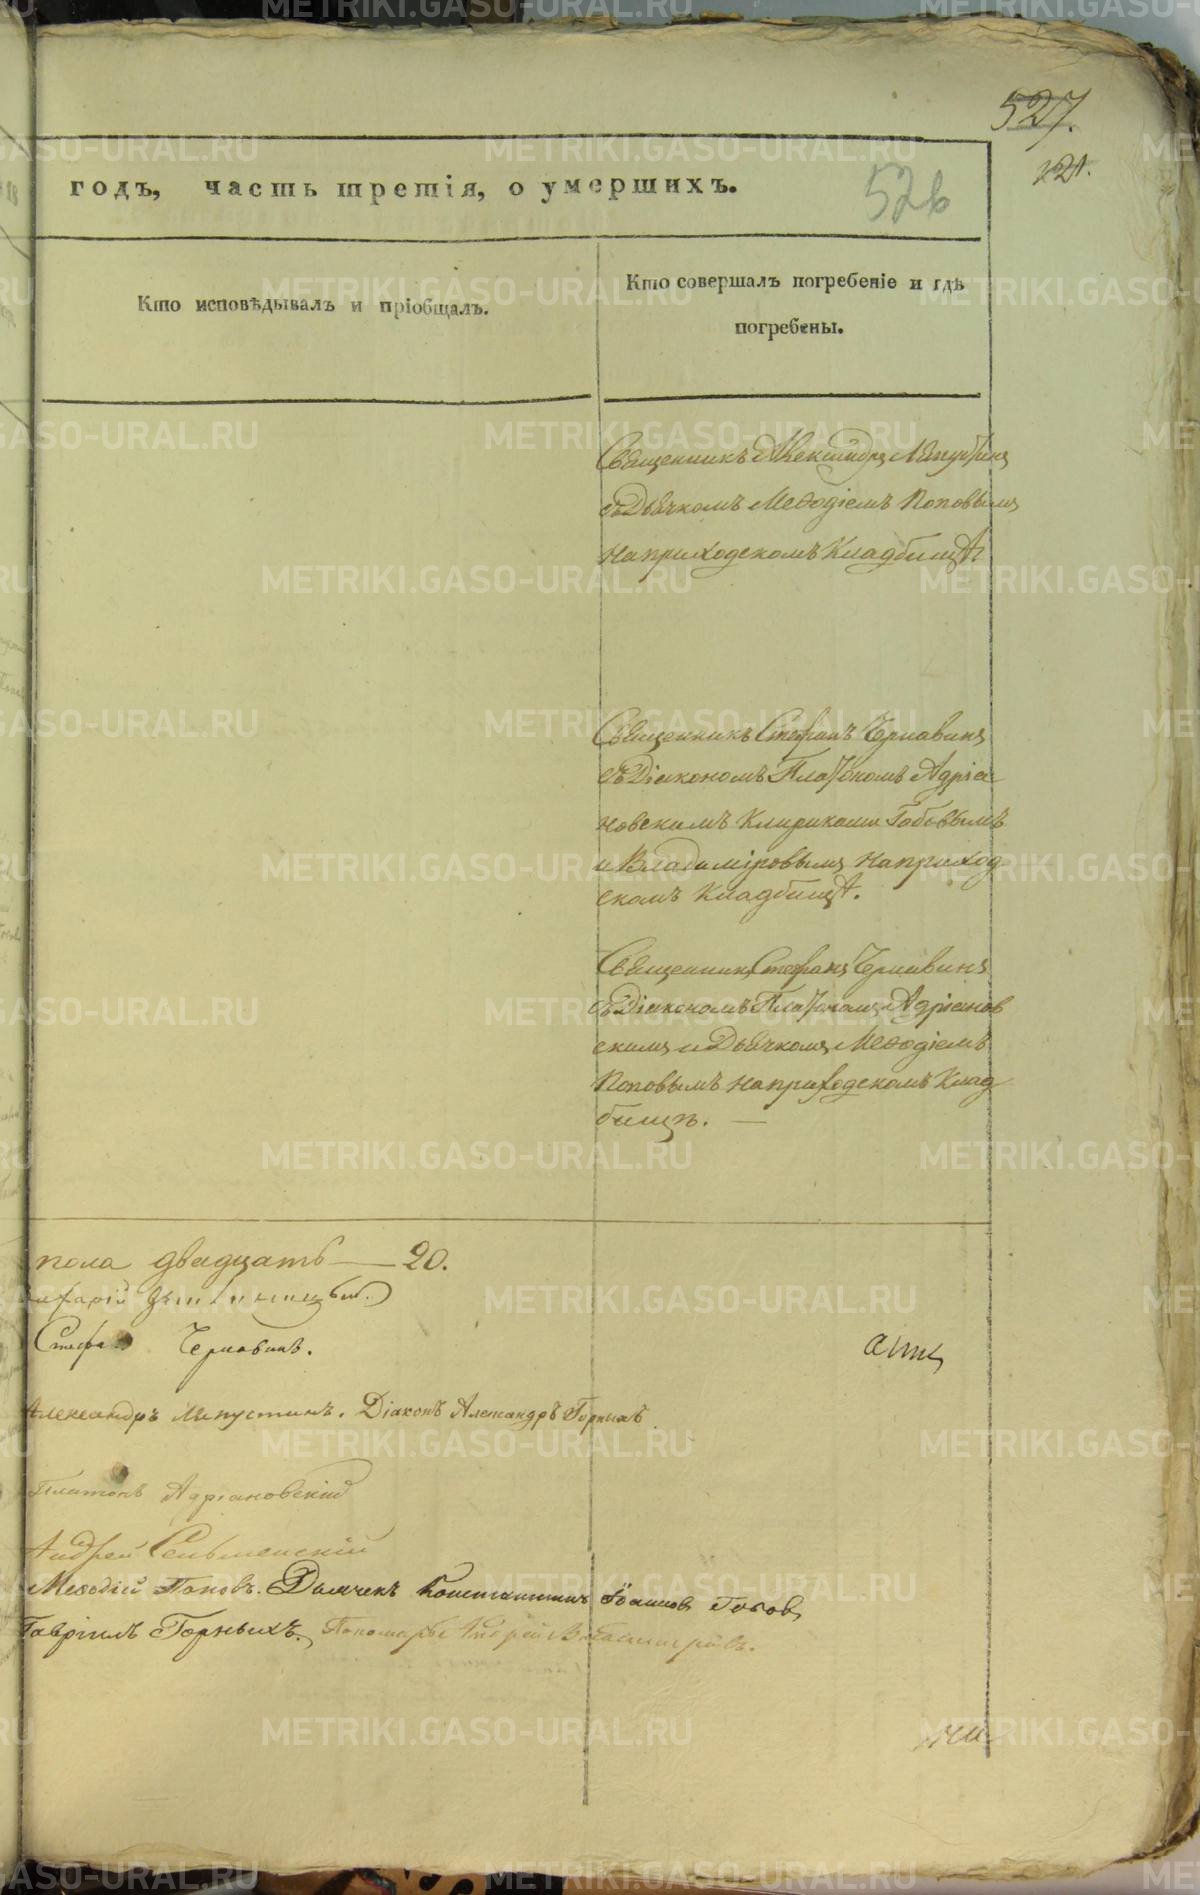 527.
121.
годъ, часть третія, о умершихъ.
526
Кто исповѣдывалъ и пріобщалъ.
Кто совершалъ погребеніе и гдѣ
погребены.
Священникъ Александръ Ляпустинъ
съ Дьячкомъ Меѳодіемъ Поповымъ
на приходскомъ кладбищѣ.
Священникъ Стефанъ Чернавинъ
съ Діакономъ Платономъ Адріа
новскимъ Клириками Гобовымъ
и Владиміровымъ на приход
скомъ кладбищѣ.
Священникъ Стефанъ Чернавинъ
съ Діакономъ Платономъ Адріанов
скимъ и Дьячкомъ Меѳодіемъ
Поповымъ на приходскомъ клад
бищѣ. —
пола двадцать — 20.
Чернавинъ.
Александръ Ляпустинъ. Діаконъ Александръ Горныхъ
Платонъ Адріановскій
Андрей
Меѳодій Поповъ. Дьячекъ Константинъ Гобовъ
Гавріилъ Горныхъ. Пономарь Андрей Владиміровъ.
METRIKI.GASO-URAL.RU